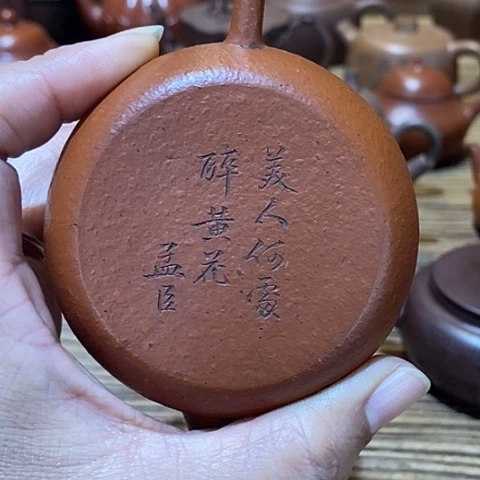 美人何處
醉黄花
孟臣